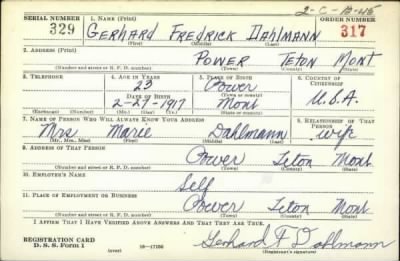 2-C-18-45
SERIAL NUMBER 1. NAME (Print) ORDER NUMBER
329 GERHARD FREDRICK DAHLMANN 317
(First) (Middle) (Last)
2. ADDRESS (Print)
POWER TETON MONT
(Number and street or R. F. D. number) (Town) (County) (State)
3. TELEPHONE 4. AGE IN YEARS 5. PLACE OF BIRTH 6. COUNTRY OF CITIZENSHIP
23 Power
DATE OF BIRTH (Town or county)
2-27-1917 Mont U.S.A.
(Exchange) (Number) (Mo.) (Day) (Yr.) (State or country)
7. NAME OF PERSON WHO WILL ALWAYS KNOW YOUR ADDRESS 8. RELATIONSHIP OF THAT PERSON
Mrs Marie Dahlmann wife
(Mr., Mrs., Miss) (First) (Middle) (Last)
9. ADDRESS OF THAT PERSON
Power Teton Mont
(Number and street or R. F. D. number) (Town) (County) (State)
10. EMPLOYER'S NAME
Self
11. PLACE OF EMPLOYMENT OR BUSINESS
Power Teton Mont
(Number and street or R. F. D. number) (Town) (County) (State)
I AFFIRM THAT I HAVE VERIFIED ABOVE ANSWERS AND THAT THEY ARE TRUE.
REGISTRATION CARD
D. S. S. Form 1 (over) Gerhard F Dahlmann
(Registrant's signature)